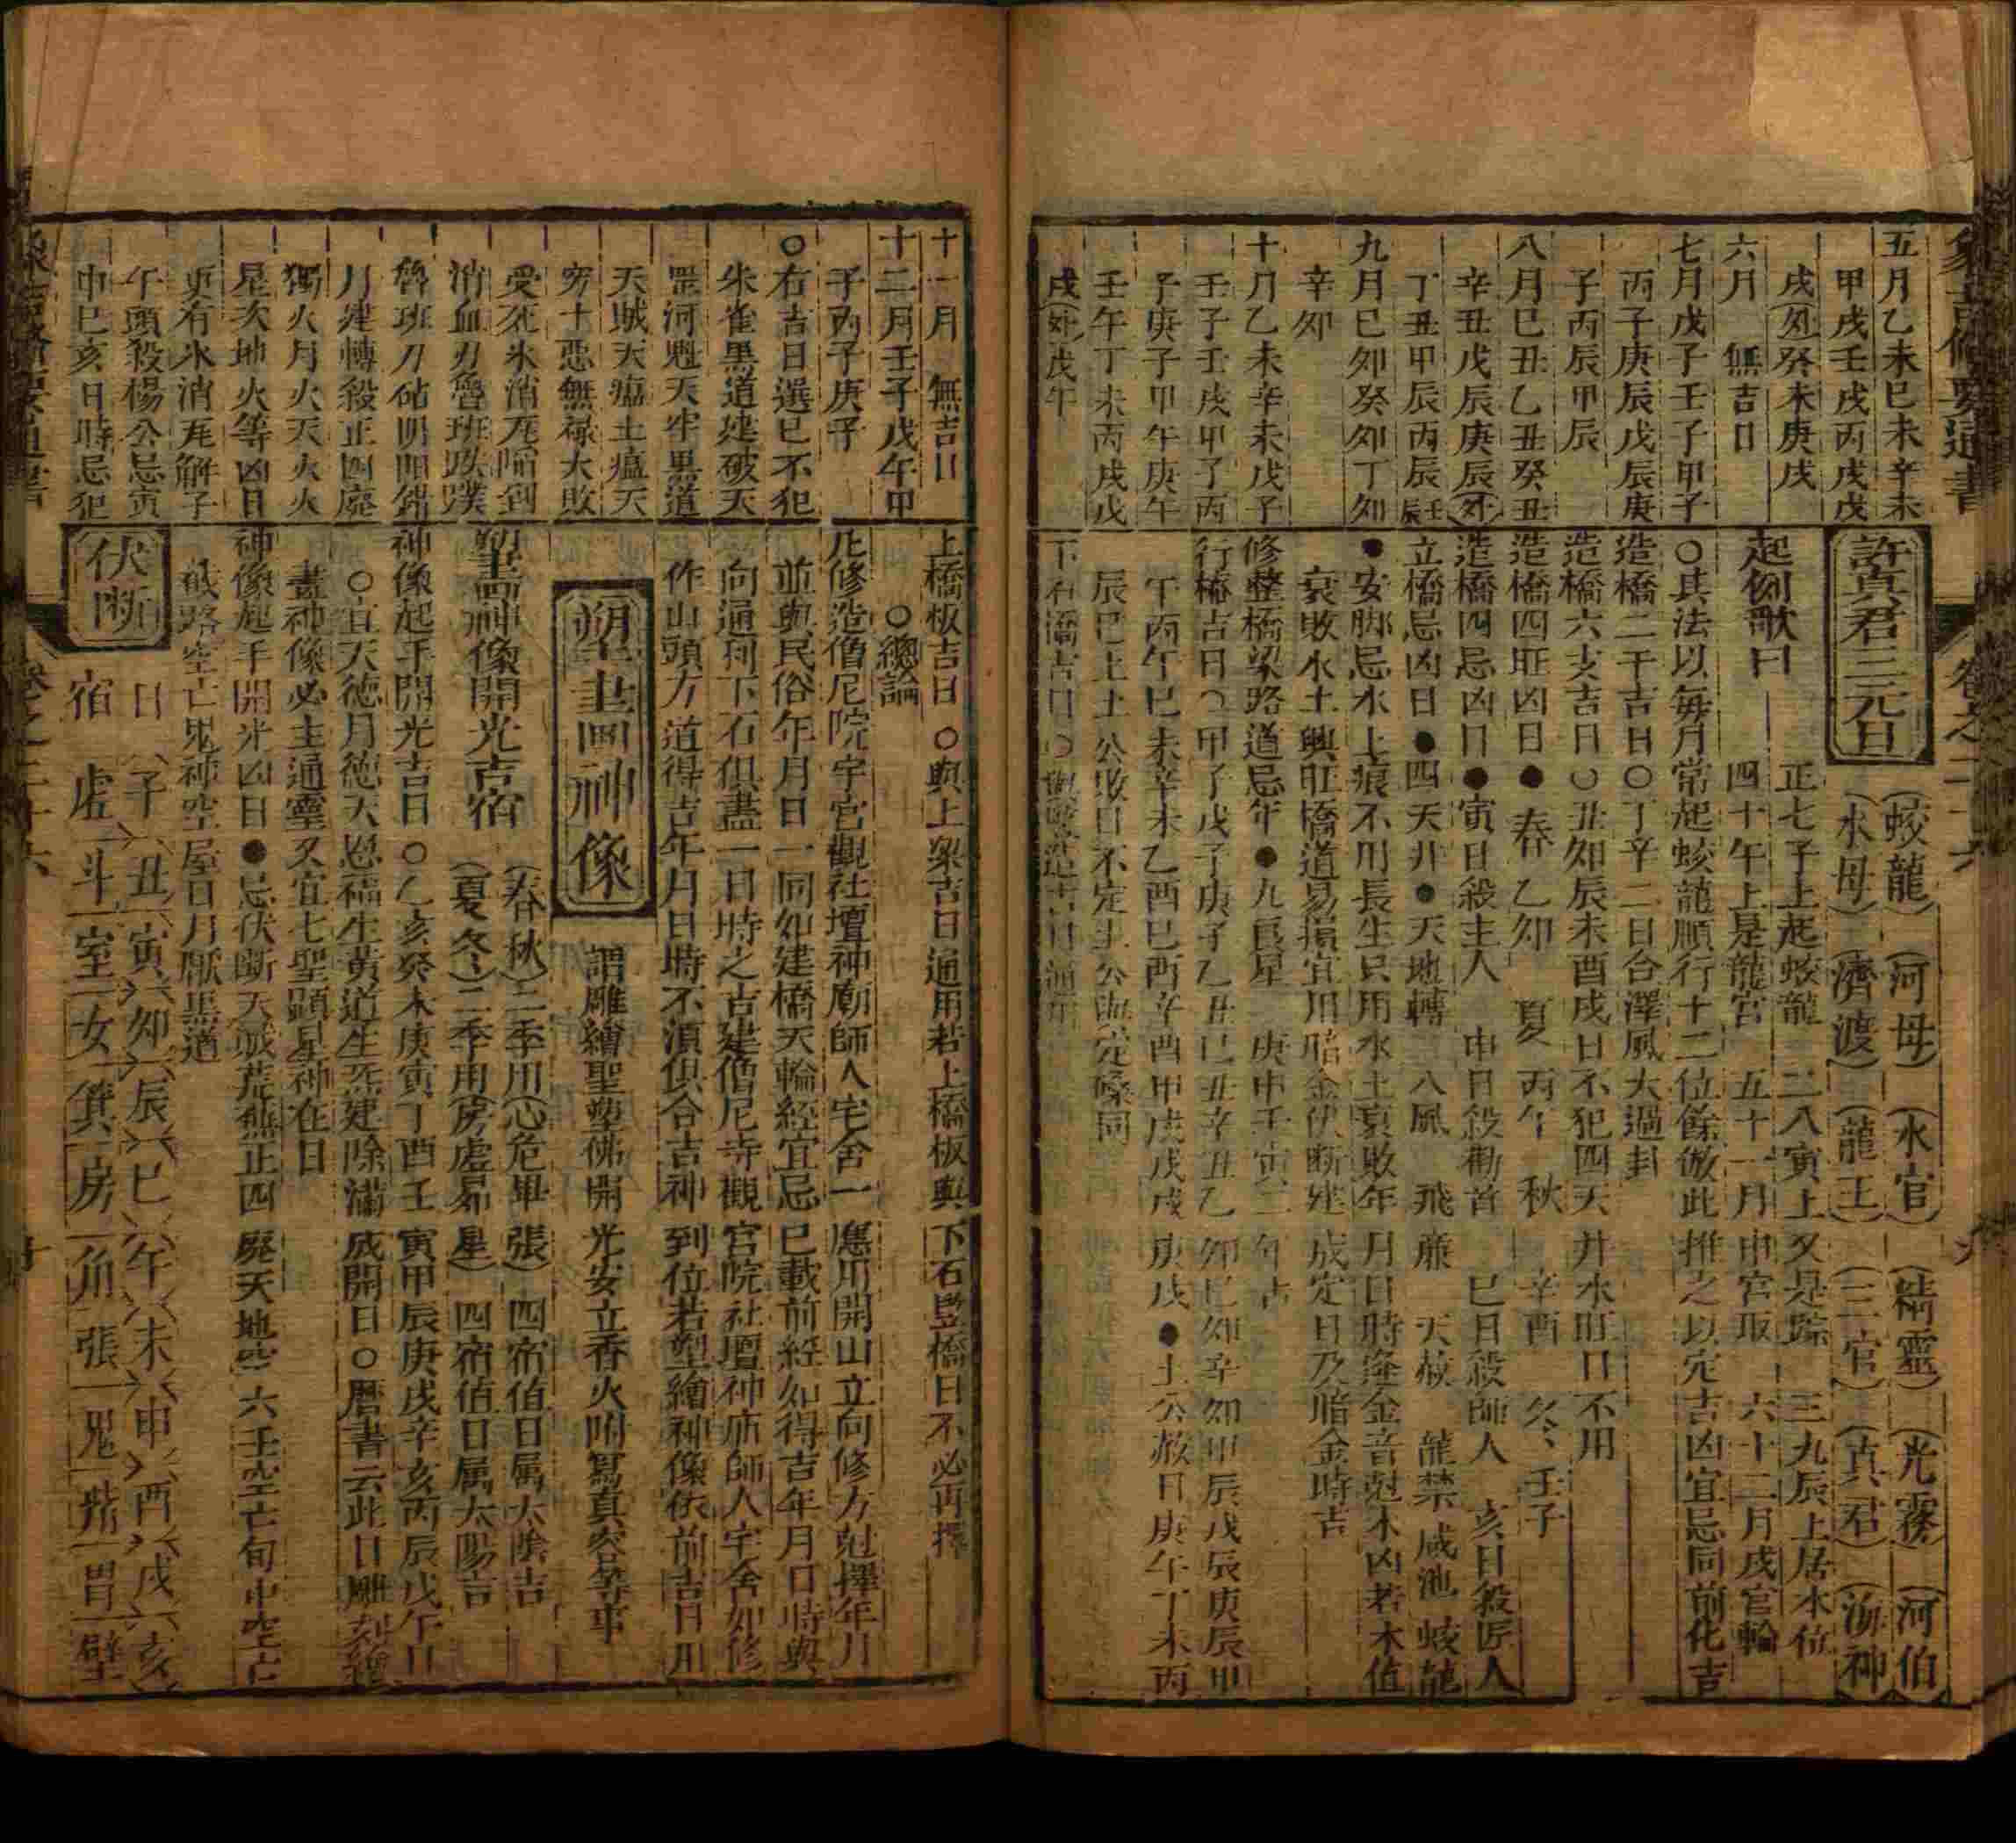 象吉備要通書
卷之二十六
五月乙未巳未辛未
甲戌壬戌丙戌戊
戌(外)癸未庚戌
六月 無吉日
七月戊子壬子甲子
丙子庚辰戊辰庚
子丙辰甲辰
八月巳丑乙丑癸丑
辛丑戊辰庚辰(外)
丁丑甲辰丙辰壬辰
九月巳夘癸夘丁夘
辛夘
十月乙未辛未戊子
壬子壬戌甲子丙
子庚子甲午庚午
壬午丁未丙戌戊
戌(外)戊午
許真君三元旦
(蛟龍)(河母)(水官)(精靈)(光霧)(河伯)
(水母)(濟渡)(龍王)(三官)(真君)(海神)
起例歌曰
正七子上起蛟龍 二八寅上又是踪 三九辰上居水位
四十午上是龍宮 五十一月申宮取 六十二月戌宮輪
○其法以每月常起蛟龍順行十二位餘倣此推之以定吉凶宜忌同前化吉
造橋二干吉日○丁辛二日合澤風大過卦
造橋六支吉日○丑夘辰未酉戌日不犯四天井水旺日不用
造橋四旺凶日●春乙夘 夏丙午 秋辛酉 冬壬子
造橋四忌凶日●寅日殺主人 申日殺勸首 巳日殺師人 亥日殺匠人
立橋忌凶日●四天井●天地轉 八風 飛廉 天赦 龍禁 咸池 蛟龍
●安脚忌水上痕不用長生只用水土衰敗年月日時逢金音尅木凶若木值
衰敗水土興旺橋道易損宜用暗金伏断建成定日及暗金時吉
修整橋梁路道忌年●九良星 庚申壬寅二年占
行橋吉日○甲子戊子庚子乙丑巳丑辛丑乙夘巳夘辛夘甲辰戊辰庚辰甲
午丙午巳未辛未乙酉巳酉辛酉甲戌戊戌庚戌●土公赦日庚午丁未丙
辰巳上土公敗日不定土公
下石橋吉日○
上橋板吉日○與上梁吉日通用若上橋板與下石竪橋日不必再擇
○總論
凡修造僧尼院宇宮觀社壇神廟師人宅舍一應用開山立向修方尅擇年月
並與民俗年月日一同如建橋天輪經宜忌巳載前經如得吉年月日時與
向通到下石俱盡一日時之吉建僧尼寺觀宮院社壇神庙師人宅舍如修
作山頭方道得吉年月日時不須俱合吉神到位若塑繪神像依前吉日用
十一月 無吉日
十二月壬子戊午甲
子丙子庚子
○右吉日選已不犯
朱雀黑道建破天
罡河魁天牢黒道
天賊天瘟土瘟天
窮十惡無祿大敗
受死氷消瓦陷刽
消血刃魯班跌蹼
魯班刀砧陰陽錯
月建轉殺正四廢
獨火月火天火火
星次地火等凶日
更有氷消瓦解子
午頭殺楊公忌寅
申巳亥日時忌犯
塑畫神像
謂雕繪聖塑佛開光安立香火附冩真容等事
塑畫神像開光吉宿
(春秋)二季用(心危畢張)四宿值日属太陰吉
(夏冬)二季用(房虚昴星)四宿值日属太陽吉
神像起手開光吉日○乙亥癸未庚寅丁酉壬寅甲辰庚戌辛亥丙辰戊午日
○宜天徳月徳天恩福生黃道生炁建除滿成開日○曆書云此日雕刻繪
畫神像必主通靈又宜七聖顕星神在日
神像起手開光凶日●忌伏断天賊荒蕪正四廢天地空 六壬空亡旬中空亡
截路空亡鬼神空屋日月厭黒道
伏断
日(子)(丑)(寅)(夘)(辰)(巳)(午)(未)(申)(酉)(戌)(亥)
宿 虚 斗 室 女 箕 房 角 張 鬼 觜 胃 壁